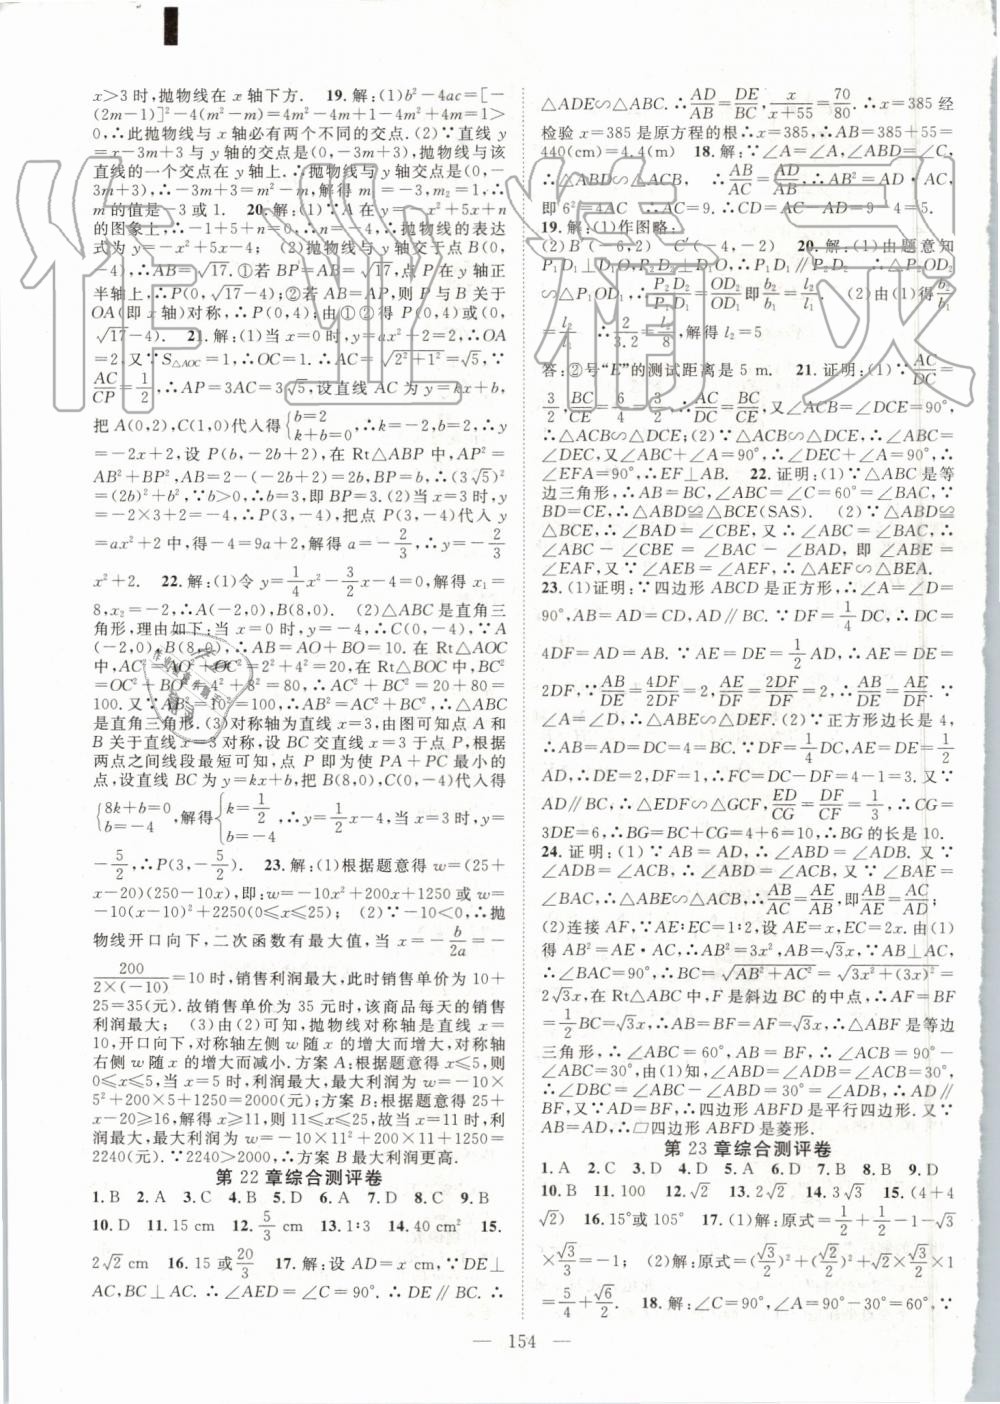 x>3时,抛物线在x轴下方. 19.解:(1)b²-4ac=[-
(2m-1)]²-4(m²-m)=4m²-4m+1-4m²+4m=1>
0,∴此抛物线与x轴必有两个不同的交点.(2)∵直线
y=x-3m+3与y轴的交点是(0,-3m+3),抛物线与该
直线的一个交点在y轴上,∴抛物线与y轴的交点是(0,
-3m+3),∴-3m+3=m²-m,解得m₁=-3,m₂=1,∴
m的值是-3或1. 20.解:(1)∵A在y=-x²+5x+n
的图象上,∴-1²+5×1+n=0,∴n=-4,∴抛物线的表达
式为y=-x²+5x-4; (2)抛物线与y轴的交点B(0,
-4),∴AB=√17.①若BP=AB=√17,点P在y轴正
半轴上,∴P(0,√17-4);②若AP=AB,则P与B关于
OA(即x轴)对称,∴P(0,4);由①②得P(0,4)或(0,
√17-4). 21.解:(1)当x=0时,y=ax²+2=2,∴OA
=2,又∵S△AOC=1,∴OC=1.∴AC=√(2²+1²)=√5,∵
AC/CP=1/2,∴AP=3AC=3√5,设直线AC为y=kx+b,
把A(0,2),C(1,0)代入得{b=2 k+b=0 ∴k=-2,∴y
=-2x+2,设P(b,-2b+2),在Rt△ABP中,AP²=
AB²+BP²,AB=2-(-2b+2)=2b,BP=b,∴(3√5)²
=(2b)²+b²,∵b>0,∴b=3,即BP=3.(2)当x=3时,y=
-2×3+2=-4,∴P(3,-4),把点P(3,-4)代入y
=ax²+2中,得-4=9a+2,解得a=-2/3,∴y=-2/3
x²+2. 22.解:(1)令y=1/4x²-3/2x-4=0,解得x₁=
8,x₂=-2,∴A(-2,0),B(8,0). (2)△ABC是直角三
角形,理由如下:当x=0时,y=-4,∴C(0,-4),∵A
(-2,0),B(8,0),∴AB=AO+BO=10.在Rt△AOC
中,AC²=AO²+OC²=2²+4²=20.在Rt△BOC中,BC²
=OC²+OB²=4²+8²=80,∴AC²+BC²=20+80=
100.又∵AB²=10²=100,∴AB²=AC²+BC²,∴△ABC
是直角三角形.(3)对称轴为直线x=3,由图可知点A和
B关于直线x=3对称,设BC交直线x=3于点P,根据
两点之间线段最短可知,点P即为使PA+PC最小的
点,设直线BC为y=kx+b,把B(8,0),C(0,-4)代入得
{8k+b=0 b=-4 {k=1/2 b=-4,∴y=1/2x-4,当x=3时,y=
-5/2,∴P(3,-5/2). 23.解:(1)根据题意得w=(25+
x-20)(250-10x),即:w=-10x²+200x+1250或w=
-10(x-10)²+2250(0⩽x⩽25) (2)∵-10<0,∴抛
物线开口向下,二次函数有最大值,当x=-b/2a=
-200/(2×(-10))=10时,销售利润最大,此时销售单价为10+
25=35(元).故销售单价为35元时,该商品每天的销售
利润最大; (3)由(2)可知,抛物线对称轴是直线x=
10,开口向下,对称轴左侧w随x的增大而增大,对称轴
右侧w随x的增大而减小.方案A:根据题意得x⩽5,则
0⩽x⩽5,当x=5时,利润最大,最大利润为w=-10×
5²+200×5+1250=2000(元);方案B:根据题意得25
+x-20⩾16,解得x⩾11,则11⩽x⩽25,故当x=11时,利
润最大,最大利润为w=-10×11²+200×11+1250=
2240(元).∵2240>2000,∴方案B最大利润更高.
第22章综合测评卷
1.B 2.A 3.A 4.C 5.D 6.B 7.D 8.C 9.B
10.D 11.15 cm 12.5/3 cm 13.1∶3 14.40 cm² 15.
2√2 cm 16.15或20/3 17.解:设AD=x cm,∵DE⊥
AC,BC⊥AC.∴∠AED=∠C=90°.∴DE∥BC.∴
△ADE∽△ABC.∴AD/AB=DE/BC,x/(x+55)=70/80.∴x=385经
检验x=385是原方程的根∴x=385,∴AB=385+55=
440(cm)=4.4(m) 18.解:∵∠A=∠A,∠ABD=∠C,
∴△ABD∽△ACB,∴AB/AC=AD/AB,∴AB²=AD·AC,
即6²=4AC ∴AC=9,∴CD=AC-AD=9-4=5.
19.解:(1)作图略;
(2)B′(-6,2) C′(-4,-2) 20.解:(1)由题意知
P₁D₁⊥D₁O,P₂D₂⊥D₁O,∴P₁D₁∥P₂D₂,∴△P₂OD₂
∽△P₁OD₁,∴P₂D₂/P₁D₁=OD₂/OD₁即b₂/b₁=l₂/l₁. (2)由(1)得b₂/b₁
=l₂/l₁ ∴2/3.2=l₂/8,解得l₂=5
答:②号“E”的测试距离是5 m. 21.证明:(1)∵AC/DC=
3/2,BC/CE=6/4=3/2,∴AC/DC=BC/CE,又∠ACB=∠DCE=90°,
∴△ACB∽△DCE;(2)∵△ACB∽△DCE,∴∠ABC=
∠DEC,又∠ABC+∠A=90°,∴∠DEC+∠A=90°,∴
∠EFA=90°,∴EF⊥AB. 22.证明:(1)∵△ABC是等
边三角形,∴AB=BC,∠ABC=∠C=60°=∠BAC,∵
BD=CE,∴△ABD≌△BCE(SAS). (2)∵△ABD≌
△BCE,∴∠BAD=∠CBE,又∴∠ABC=∠BAC,∴
∠ABC-∠CBE=∠BAC-∠BAD,即∠ABE=
∠EAF,又∵∠AEF=∠BEA,∴△AEF∽△BEA.
23.(1)证明:∵四边形ABCD是正方形,∴∠A=∠D=
90°,AB=AD=CD,AD∥BC.∵DF=1/4DC,∴DC=
4DF=AD=AB.∵AE=DE=1/2AD,∴AE=DE=
2DF,∵AB/DE=4DF/2DF=2,AE/DF=2DF/DF=2,∴AB/DE=AE/DF.∵
∠A=∠D,∴△ABE∽△DEF.(2)∵正方形边长是4,
∴AB=AD=DC=4=BC.∵DF=1/4DC,AE=DE=1/2
AD,∴DE=2,DF=1,∴CF=DC-DF=4-1=3.又∵
AD∥BC,∴△EDF∽△GCF,ED/CG=DF/CF=1/3,∴CG=
3DE=6,∴BG=BC+CG=4+6=10,∴BG的长是10.
24.证明:(1)∵AB=AD,∴∠ABD=∠ADB.又∵
∠ADB=∠ACB,∴∠ABD=∠ACB.又∵∠BAE=
∠CAB,∴△ABE∽△ACB,∴AB/AC=AE/AB,即AB/AE=AC/AD;
(2)连接AF,∵AE∶EC=1∶2,设AE=x,EC=2x.由(1)
得AB²=AE·AC,∴AB²=3x²,AB=√3x,又∵AB⊥AC,
∴∠BAC=90°,∴BC=√(AB²+AC²)=√((√3x)²+(3x)²)=
2√3x,在Rt△ABC中,F是斜边BC的中点,∴AF=BF=
1/2BC=√3x,又∵AB=AD=√3x,∴△ABF是等边
三角形,∴∠ABC=60°,AB=BF,∴∠ACB=30°,
∠BAC=90°,由(1)知,∠ADB=∠ACB=∠ABD=30°,
∴∠DBC=∠ABC-∠ABD=30°=∠ADB,∴AD∥
BF,又∵AD=AB=BF,∴四边形ABFD是平行四边形.又∵
AD=AB,∴▱四边形ABFD是菱形.
第23章综合测评卷
1.A 2.C 3.D 4.D 5.D 6.A 7.D 8.B 9.D
10.B 11.100 12.√2 13.√2 14.3√3 15.(4+4
√2) 16.15°或105° 17.(1)解:原式=1/2+1/2-√3
×√3/3=-1; (2)解:原式=(√3/2)²+(√2/2)²+√2×√3/2×1
=5/4+√6/2. 18.解:∠C=90°,∠A=90°-30°=60°,∵
154